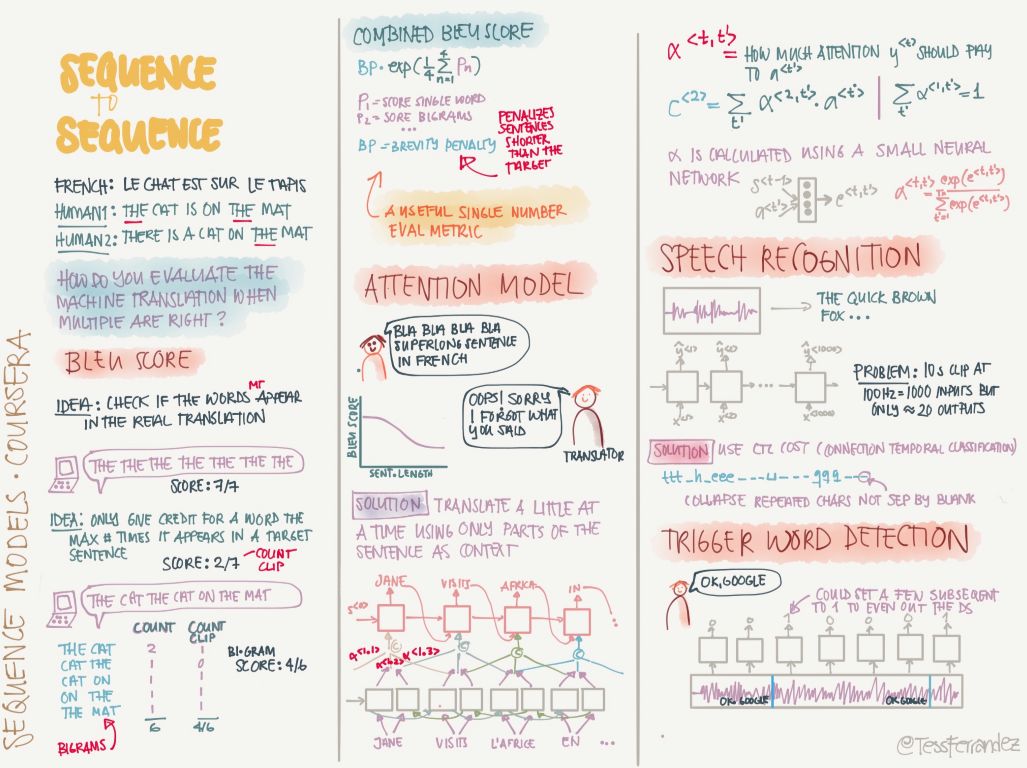 SEQUENCE MODELS · COURSERA
SEQUENCE
TO
SEQUENCE
FRENCH: LE CHAT EST SUR LE TAPIS
HUMAN1: THE CAT IS ON THE MAT
HUMAN2: THERE IS A CAT ON THE MAT
HOW DO YOU EVALUATE THE
MACHINE TRANSLATION WHEN
MULTIPLE ARE RIGHT?
BLEU SCORE
MT
IDEA: CHECK IF THE WORDS APPEAR
IN THE REAL TRANSLATION
THE THE THE THE THE THE THE
SCORE: 7/7
IDEA: ONLY GIVE CREDIT FOR A WORD THE
MAX # TIMES IT APPEARS IN A TARGET
SENTENCE
SCORE: 2/7
COUNT
CLIP
THE CAT THE CAT ON THE MAT
COUNT COUNT
CLIP
THE CAT 2 1
CAT THE 1 0
CAT ON 1 1
ON THE 1 1
THE MAT 1 1
6 4/6
BIGRAM
SCORE: 4/6
BIGRAMS
COMBINED BLEU SCORE
BP · exp(1/4 4∑n=1 Pn)
P1 = SCORE SINGLE WORD
P2 = SORE BIGRAMS
...
BP = BREVITY PENALTY
PENALIZES
SENTENCES
SHORTER
THAN THE
TARGET
A USEFUL SINGLE NUMBER
EVAL METRIC
ATTENTION MODEL
BLA BLA BLA BLA
SUPERLONG SENTENCE
IN FRENCH
OOPS! SORRY
I FORGOT WHAT
YOU SAID
TRANSLATOR
BLEU SCORE
SENT. LENGTH
SOLUTION TRANSLATE A LITTLE AT
A TIME USING ONLY PARTS OF THE
SENTENCE AS CONTEXT
JANE VISITS AFRICA IN
S<0>
C C C C
α<1,1> α<1,2> α<1,3>
JANE VISITS L'AFRICE EN ...
α<t,t'> = HOW MUCH ATTENTION y<t> SHOULD PAY
TO a<t'>
C<2> = ∑t' α<2,t'> · a<t'> | ∑t' α<1,t'> = 1
α IS CALCULATED USING A SMALL NEURAL
NETWORK
S<t-1>
a<t'>
e<t,t'>
α<t,t'> = exp(e<t,t'>) / Tx∑t'=1 exp(e<t,t'>)
SPEECH RECOGNITION
THE QUICK BROWN
FOX ...
ŷ<1> ŷ<2> ŷ<1000>
...
x<1> x<2> x<1000>
PROBLEM: 10s CLIP AT
100Hz = 1000 INPUTS BUT
ONLY ≈ 20 OUTPUTS
SOLUTION USE CTC COST (CONNECTION TEMPORAL CLASSIFICATION)
ttt_h_eee---⊔---qqq--
COLLAPSE REPEATED CHARS NOT SEP BY BLANK
TRIGGER WORD DETECTION
OK, GOOGLE
COULD SET A FEW SUBSEQUENT
TO 1 TO EVEN OUT THE DS
0 0 1 0 0 0 1
OK GOOGLE OK GOOGLE
@TessFerrandez